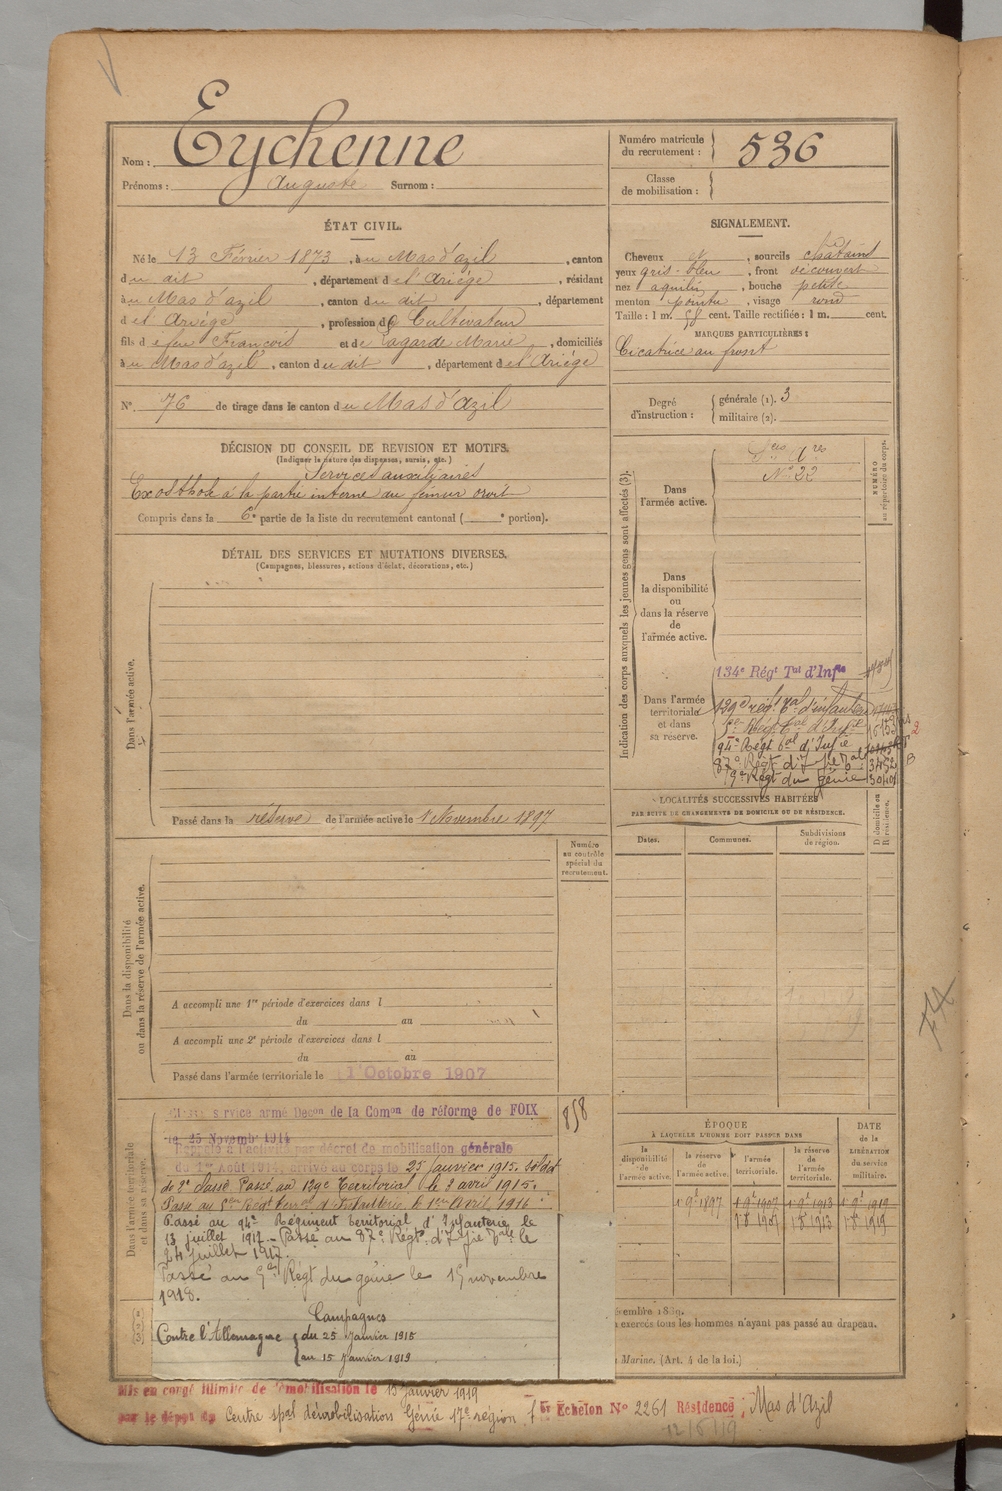 Nom : Eychenne
Prénoms : Auguste Surnom :
Numéro matricule du recrutement : 536
Classe de mobilisation :
ÉTAT CIVIL.
Né le 13 Février 1873, à u Mas d'azil, canton
d u dit, département d e l'Ariège, résidant
à u Mas d'azil, canton d u dit, département
d e l'Ariège, profession d e Cultivateur
fils d e feu François et d e Lagarde Marie, domiciliés
à u Mas d'azil, canton d u dit, département d e l'Ariège
N° 76 de tirage dans le canton d u Mas d'Azil
SIGNALEMENT.
Cheveux et, sourcils châtains
yeux gris-bleu, front découvert
nez aquilin, bouche petite
menton pointu, visage rond
Taille : 1 m. 58 cent. Taille rectifiée : 1 m. cent.
MARQUES PARTICULIÈRES :
Cicatrice au front
Degré d'instruction : générale (1). 3
militaire (2).
DÉCISION DU CONSEIL DE REVISION ET MOTIFS.
(Indiquer la nature des dispenses, sursis, etc.)
Services auxiliaires
Exosthose à la partie interne du fémur droit
Compris dans la 6e partie de la liste du recrutement cantonal ( e portion).
DÉTAIL DES SERVICES ET MUTATIONS DIVERSES.
(Campagnes, blessures, actions d'éclat, décorations, etc.)
Dans l'armée active.
Passé dans la réserve de l'armée active le 1 Novembre 1897
Indication des corps auxquels les jeunes gens sont affectés (3).
NUMÉRO au répertoire du corps.
Dans l'armée active.
N° 22
Dans la disponibilité ou dans la réserve de l'armée active.
Dans l'armée territoriale et dans sa réserve.
134e Régt Tal d'Infie
129e régt Tal d'infanterie
5e Régt Tal d'Infie
94e Régt Tal d'Infie
87e Régt d'Infie Tale 3452
9e Régt du génie
LOCALITÉS SUCCESSIVES HABITÉES
PAR SUITE DE CHANGEMENTS DE DOMICILE OU DE RÉSIDENCE.
Dates. Communes. Subdivisions de région. D. domicile ou R. résidence.
Dans la disponibilité ou dans la réserve de l'armée active.
Numéro au contrôle spécial du recrutement.
A accompli une 1re période d'exercices dans l
du au
A accompli une 2e période d'exercices dans l
du au
Passé dans l'armée territoriale le 1 Octobre 1907
Dans l'armée territoriale et dans sa réserve.
858
Classé service armé Décon de la Comon de réforme de FOIX
le 25 Novembre 1914
Rappelé à l'activité par décret de mobilisation générale
du 1er Août 1914, arrivé au corps le 25 janvier 1915. soldat
de 2e classe. Passé au 129e Territorial le 2 avril 1915.
Passé au 5e Régt terral d'Infanterie le 1er Avril 1916
Passé au 94e Régiment territorial d'Infanterie le
13 juillet 1917 - Passé au 87e Régt d'Infie Tale le
24 juillet 1917.
Passé au 9e Régt du génie le 15 novembre
1918.
Campagnes
Contre l'Allemagne du 25 Janvier 1915
au 15 Janvier 1919
ÉPOQUE
À LAQUELLE L'HOMME DOIT PASSER DANS
DATE de la LIBÉRATION du service militaire.
la disponibilité de l'armée active. la réserve de l'armée active. l'armée territoriale. la réserve de l'armée territoriale.
1 9e 1897 1 9e 1907 1 9e 1913 1 9e 1919
1 8 1907 1 8 1913 1 8 1919
exercés tous les hommes n'ayant pas passé au drapeau.
Marine. (Art. 4 de la loi.)
Mis en congé illimité de démobilisation le 15 Janvier 1919
par le dépôt du Centre spal démobilisation Génie 17e région 1er Echelon No 2261 Résidence : Mas d'Azil
12/5/19